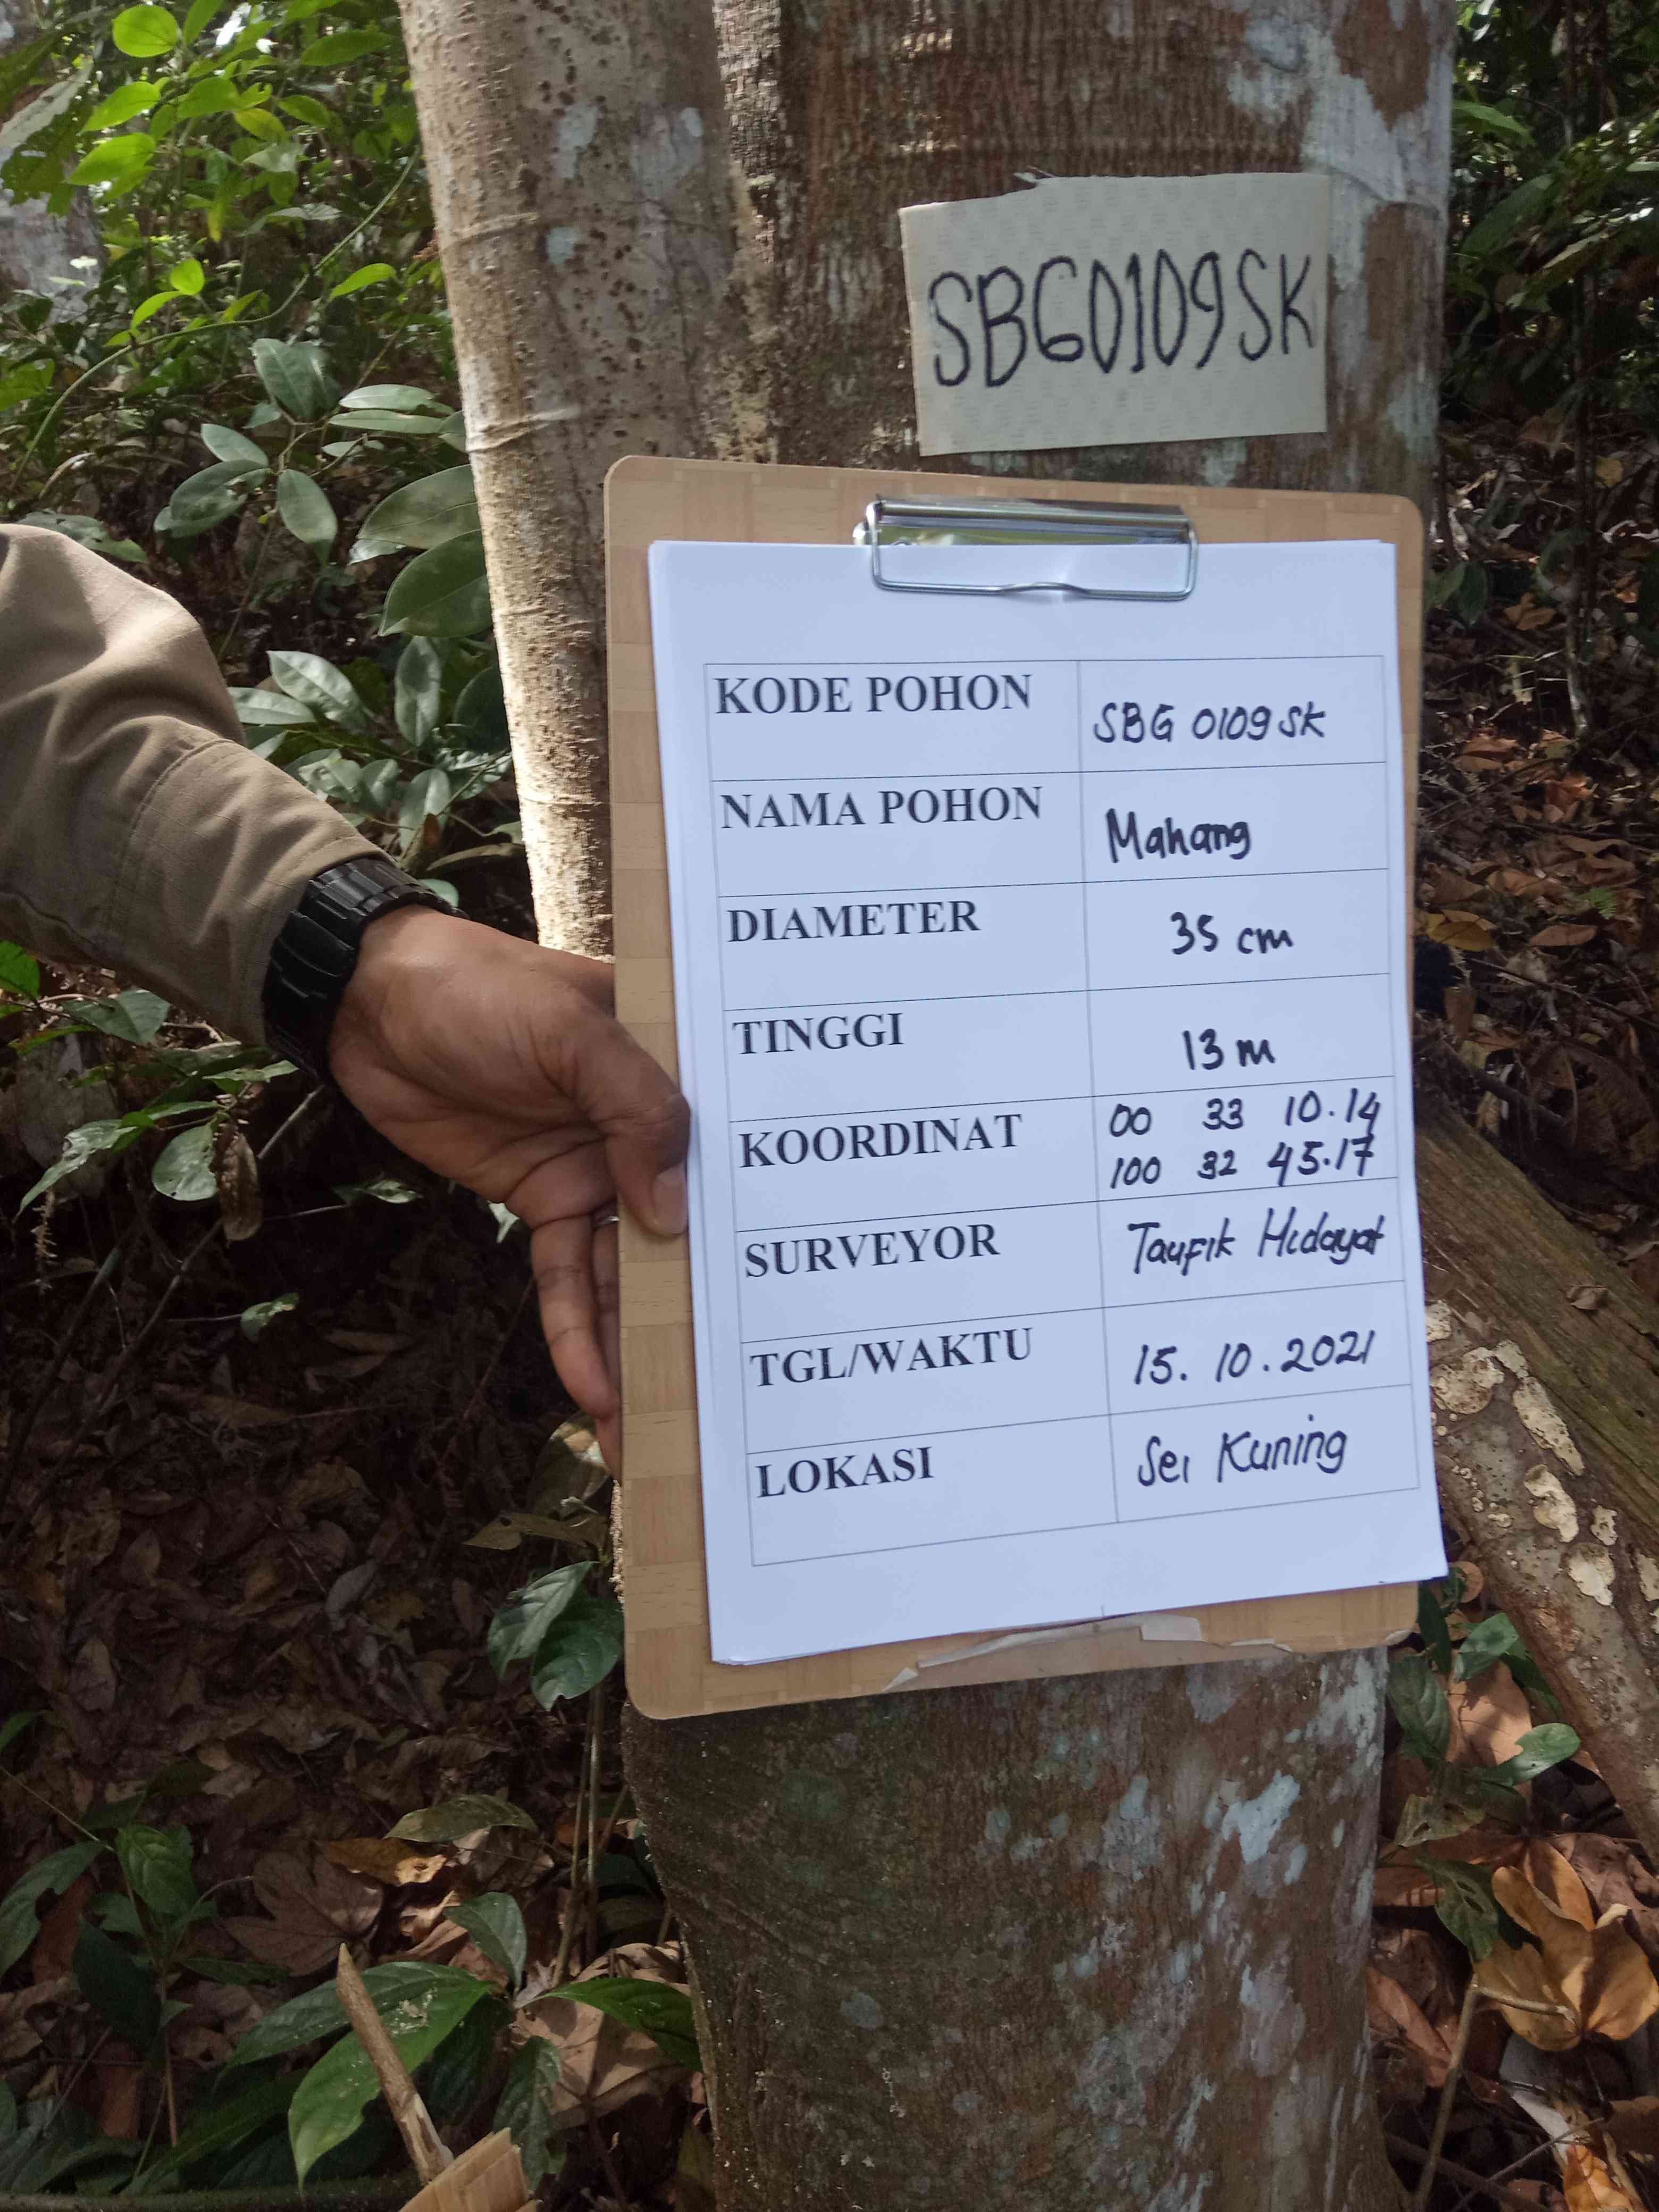 SBG0109SK
KODE POHON SBG 0109 SK
NAMA POHON Mahang
DIAMETER 35 cm
TINGGI 13 m
KOORDINAT 00 33 10.14
100 32 45.17
SURVEYOR Taufik Hidayat
TGL/WAKTU 15. 10. 2021
LOKASI Sei Kuning